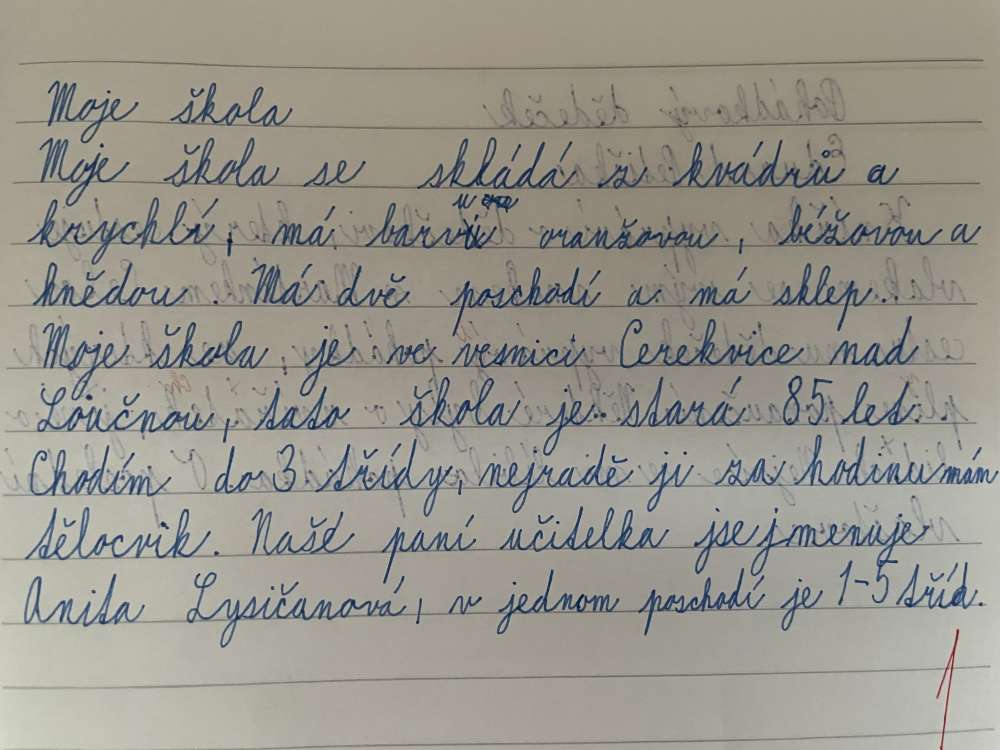 Moje škola
Moje škola se skládá z kvádrů a
krychlí, má barvu oranžovou, béžovou a
hnědou. Má dvě poschodí a má sklep.
Moje škola je ve vesnici Cerekvice nad
Loučnou, tato škola je stará 85 let.
Chodím do 3 třídy, nejradě ji za hodinu mám
tělocvik. Našé paní učitelka jse jmenuje
Anita Lysičanová, v jednom poschodí je 1-5 tříd.
1